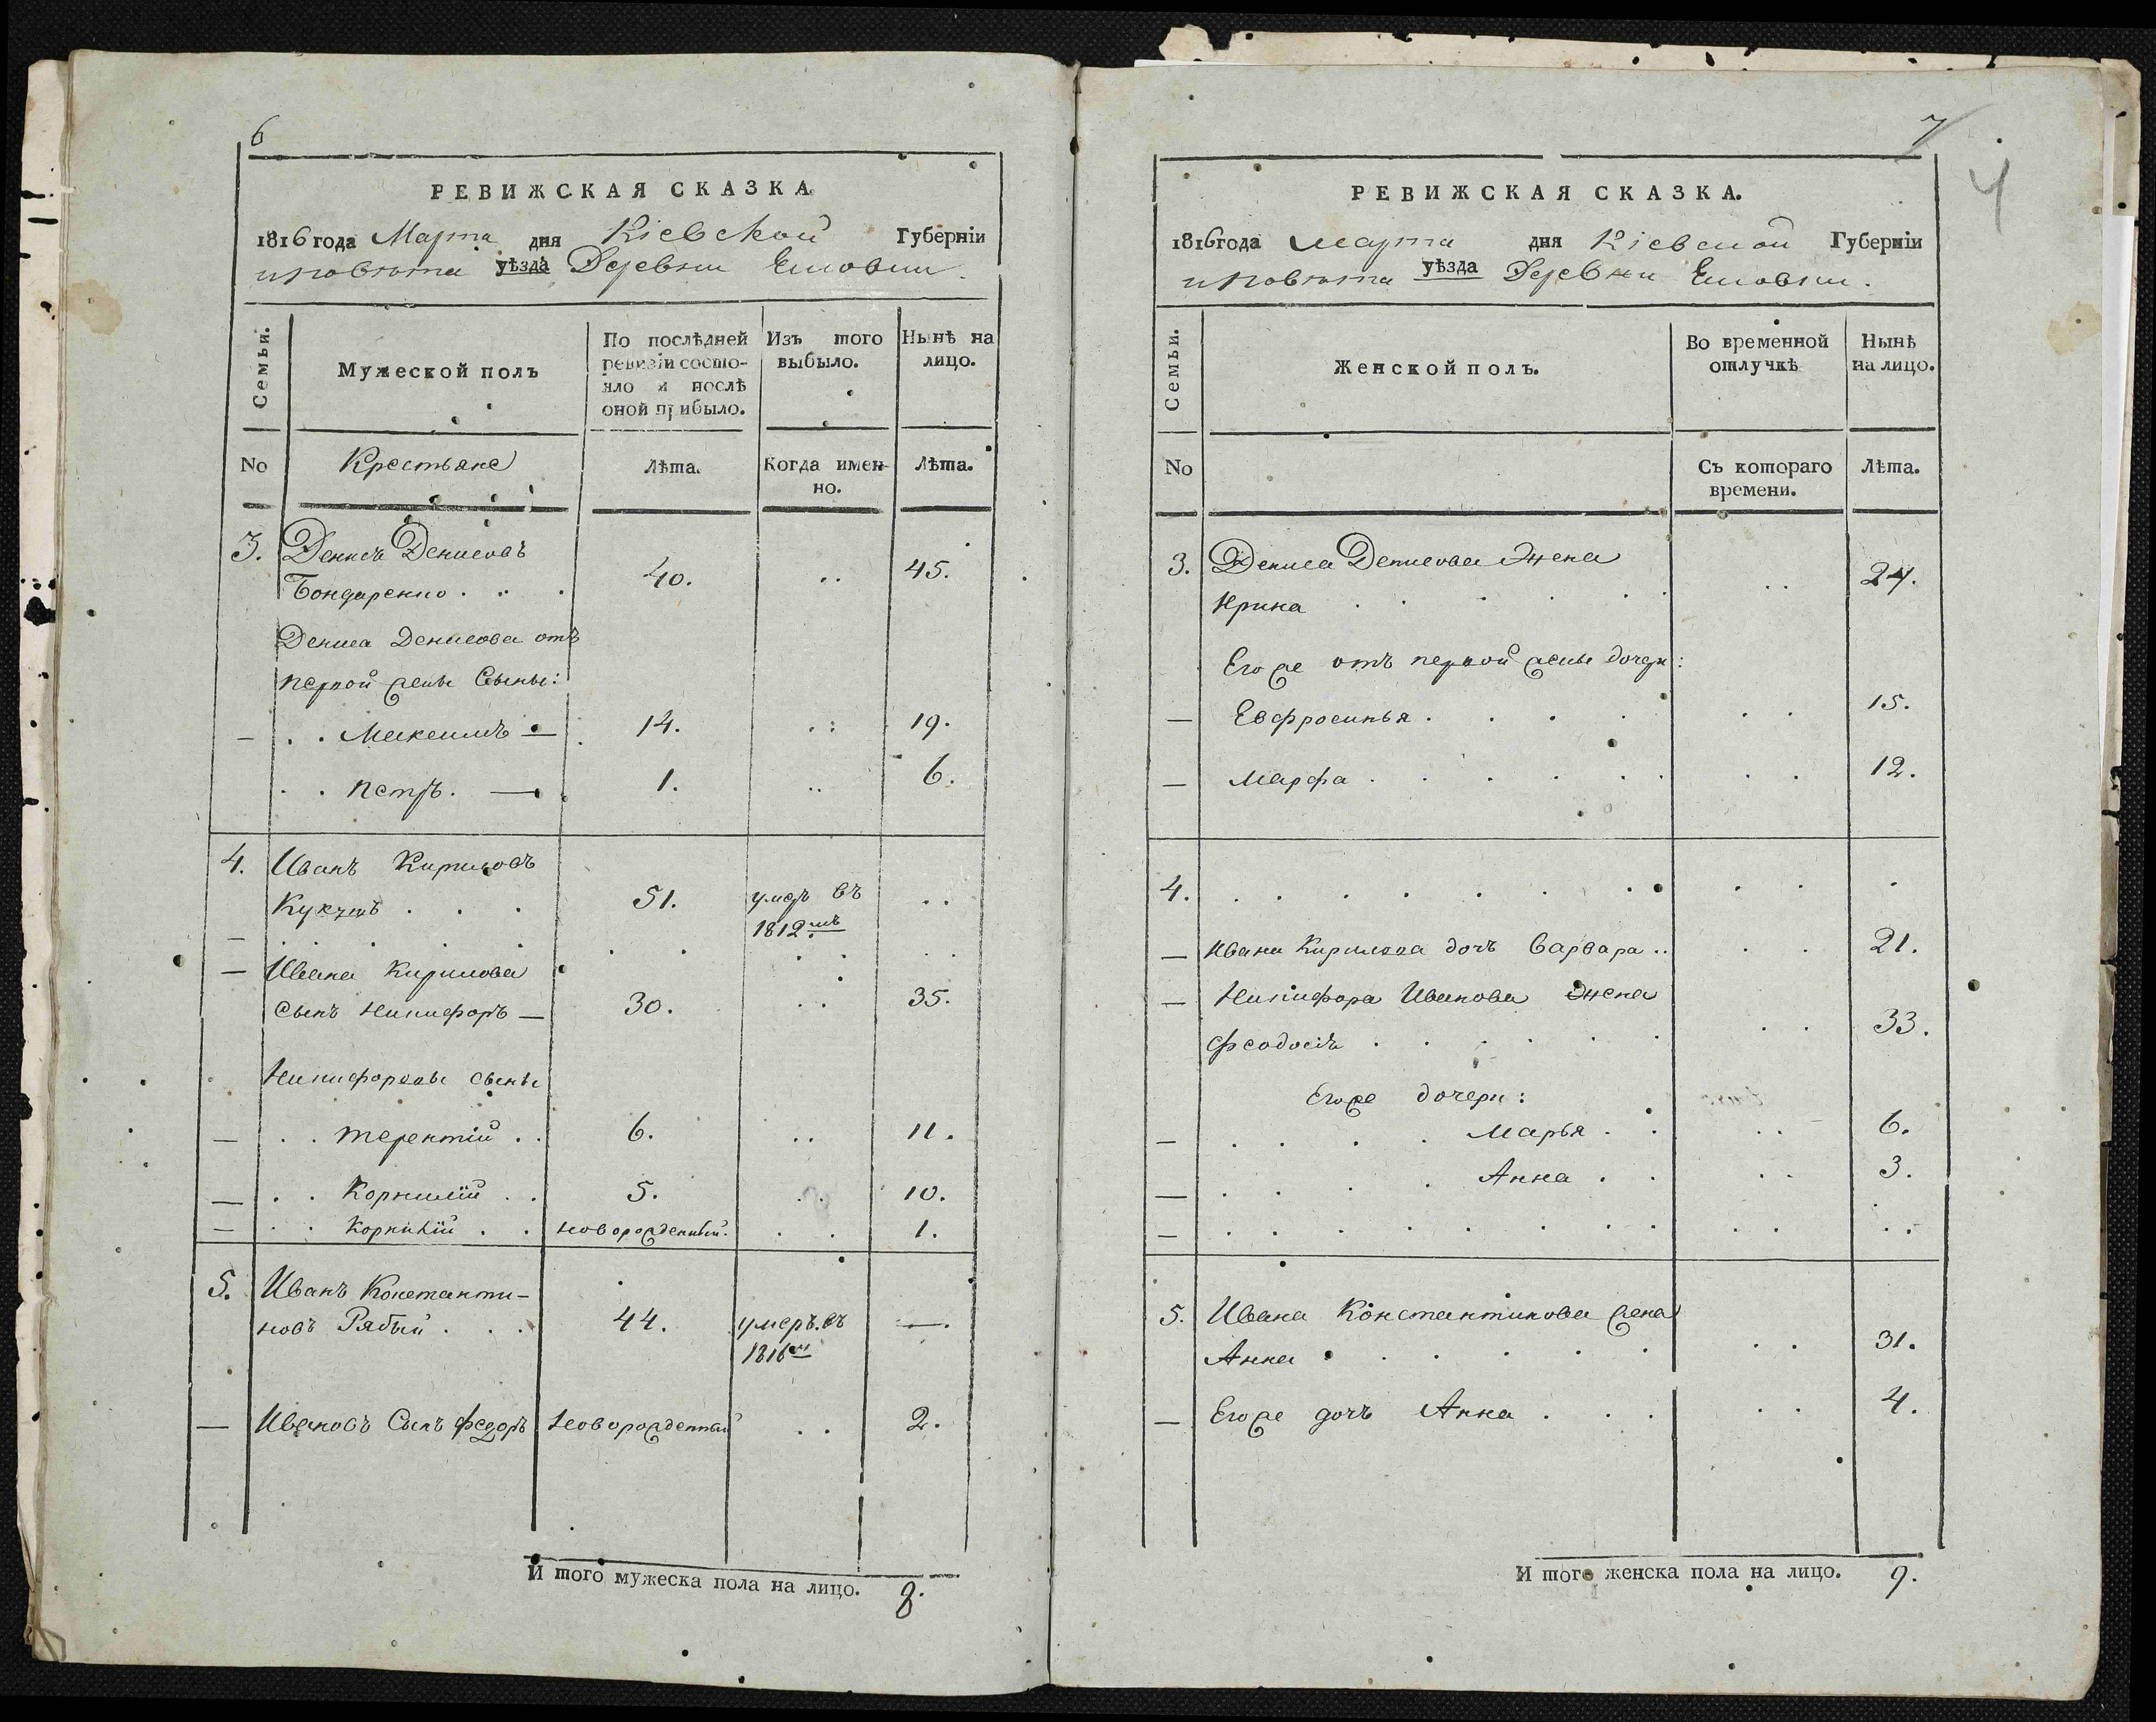 6
РЕВИЖСКАЯ СКАЗКА
1816 года Марта дня Кіевской Губерніи
и повѣта уѣзда Деревни
Семьи.
Мужеской полъ
По послѣдней
ревизіи состо-
яло и послѣ
оной прибыло.
Изъ того
выбыло.
Нынѣ на
лицо.
No
Крестьяне
Лѣта.
Когда имен-
но.
Лѣта.
3. Денисъ Денисовъ
Бондаренко . . . 40. .. 45.
Дениса Денисова отъ
первой жены Сыны:
— . . Максимъ — 14. .. 19.
. . Петръ. — 1. .. 6.
4. Иванъ Кириловъ
51. умеръ въ ..
1812мъ
— Ивана Кирилова
сынъ Никифоръ — 30. .. 35.
Никифоровы сыны
— . . Терентій . . 6. .. 11.
— . . Корнилій . . 5. .. 10.
— . . Корнилій . . новорожденный. . . 1.
5. Иванъ Константи-
новъ Рябый . . . 44. умеръ въ —.
1816мъ
— Ивановъ Сынъ Федоръ Новорожденный . . 2.
И того мужеска пола на лицо. 8.
7
4
РЕВИЖСКАЯ СКАЗКА.
1816 года Марта дня Кіевской Губерніи
и повѣта уѣзда Деревни
Семьи.
Женской полъ.
Во временной
отлучкѣ
Нынѣ
на лицо.
No
Съ котораго
времени.
Лѣта.
3. Дениса Денисова Жена
Ирина . . . . . . . 24.
Его же отъ первой жены дочери:
— Евфросинья . . . . . . 15.
— Марфа . . . . . . . 12.
4. . . . . . . . . . .
— Ивана Кирилова дочь Варвара .. . . 21.
— Никифора Иванова Жена
Феодосія . . . . . . . 33.
Его же дочери:
— . . . . Марья . . .. 6.
— . . . . Анна . . .. 3.
— . . . . . . . . . . . .
5. Ивана Константинова жена
Анна . . . . . . . . 31.
— Его же дочь Анна . . . . . 4.
И того женска пола на лицо. 9.